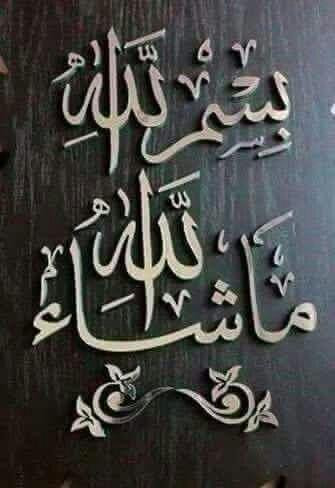 بِسْمِ اللّٰهِ
مَا شَاءَ اللّٰهُ